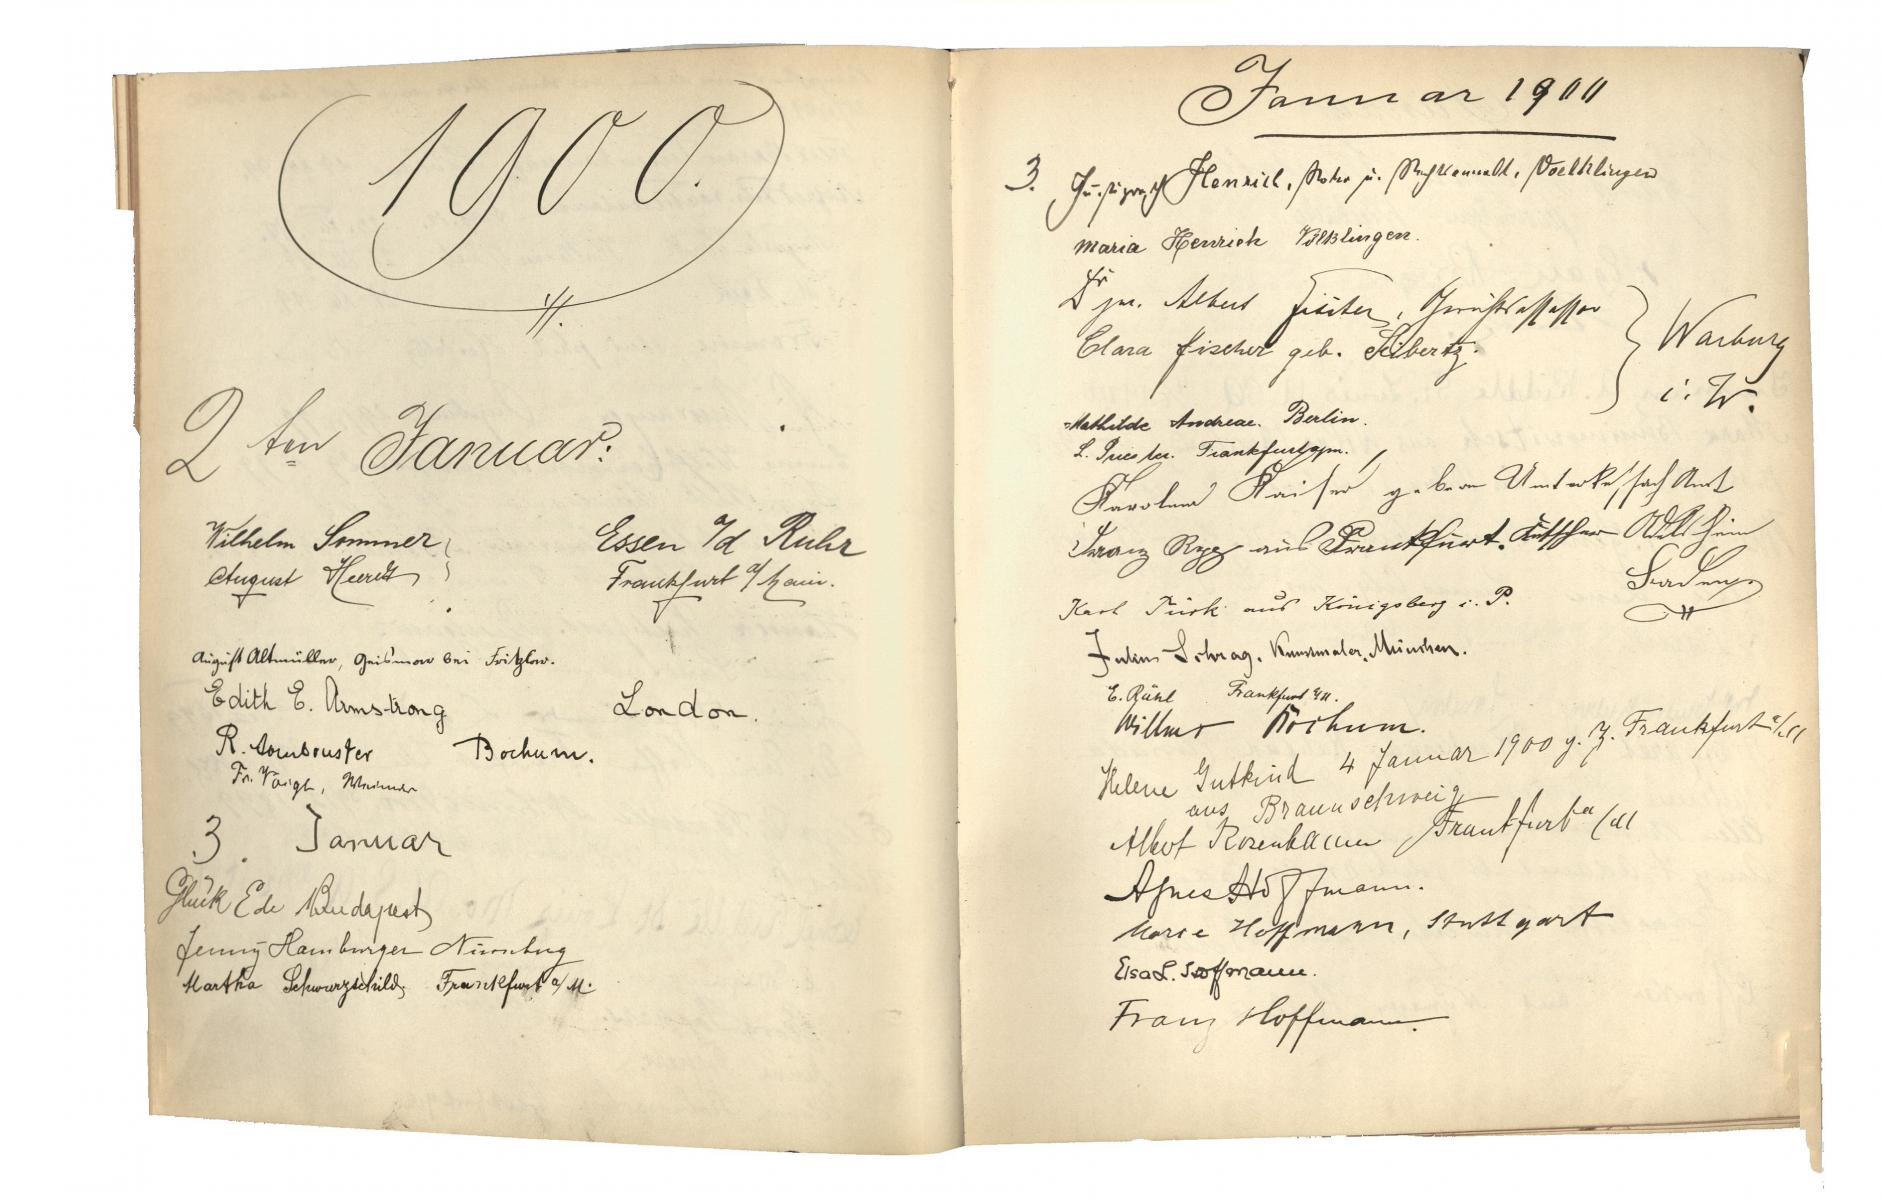 1900.
2ten Januar:
Wilhelm Sommer Essen a/d Ruhr
August Heerdt Frankfurt a/Main.
August Altmüller, Geismar bei Fritzlar.
Edith E. Armstrong London.
R. Bochum.
Fr. Voigt,
3. Januar
Glück Ede Budapest
Jenny Hamburger Nürnberg
Martha Schwarzschild, Frankfurt a/M.
Januar 1900
3. Justizrat Henrich, Notar u. Rechtsanwalt, Voelklingen
Maria Henrich Völklingen.
Dr jur. Albert Fischer, Gerichtsassessor
Clara Fischer geb. Seibertz.
Warburg
i. W.
Mathilde Andreae. Berlin.
L. Priester. Frankfurt
Karolina Kaiser Amt
Franz aus Frankfurt. Adelsheim
Baden
Karl Türk aus Königsberg i. P.
Julius Schrag, Kunstmaler, München.
E. Rühl Frankfurt a/M.
Bochum.
Helene Gutkind 4 Januar 1900 z. Z. Frankfurt a/M
aus Braunschweig
Albert Rosenbaum Frankfurt a/M
Agnes Hoffmann.
Marie Hoffmann, Stuttgart
Elsa L. Hoffmann.
Franz Hoffmann.